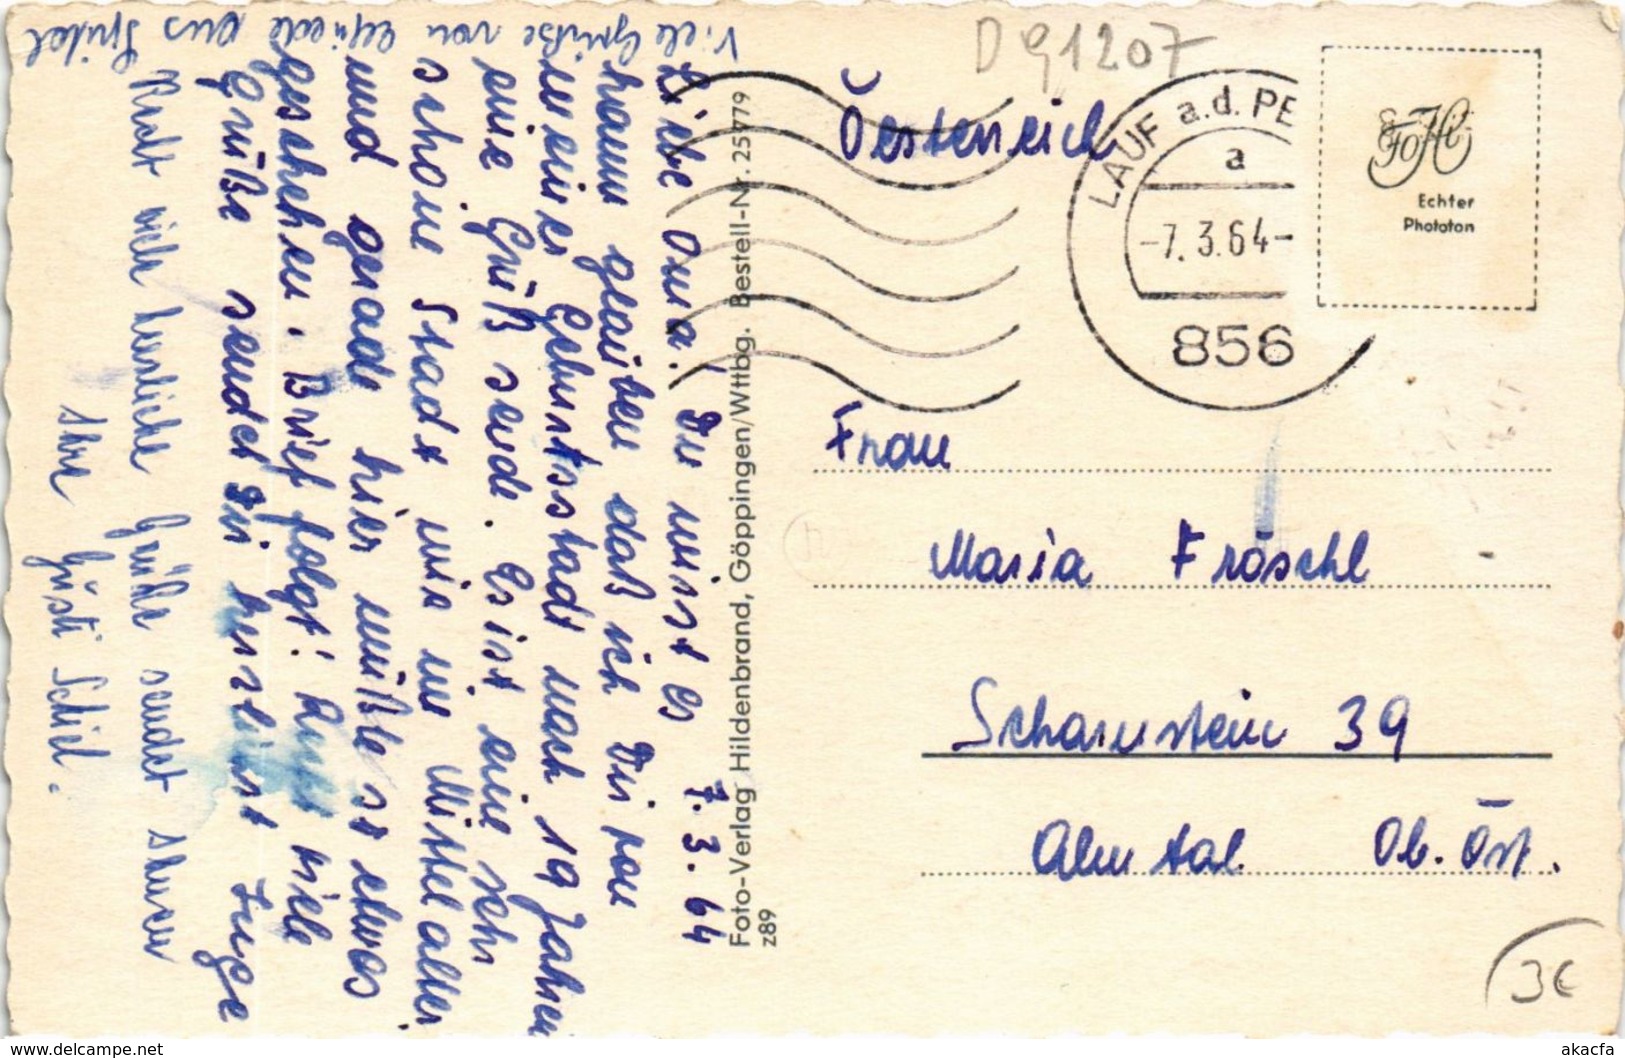 D 91207
Österreich
LAUF a.d. PE
a
-7.3.64-
856
FoHi
Echter
Phototon
Frau
Maria Fröschl
Scharnstein 39
Almtal Ob. Öst.
3€
Foto-Verlag Hildenbrand, Göppingen/Wttbg. Bestell-Nr. 25779
z89
7.3.64
Liebe Oma! Du wirst es
kaum glauben daß ich Dir von
meiner Geburtsstadt nach 19 Jahren
eine Grüß sende. Es ist eine sehr
schöne Stadt wie im Mittelalter
und gerade hier mußte so etwas
geschehen. Brief folgt! viele
Grüße sendet Dir herzlichst Inge
Recht viele herzliche Grüße sendet
Gusti Schiel.
Viele Grüsse von aus
akacfa